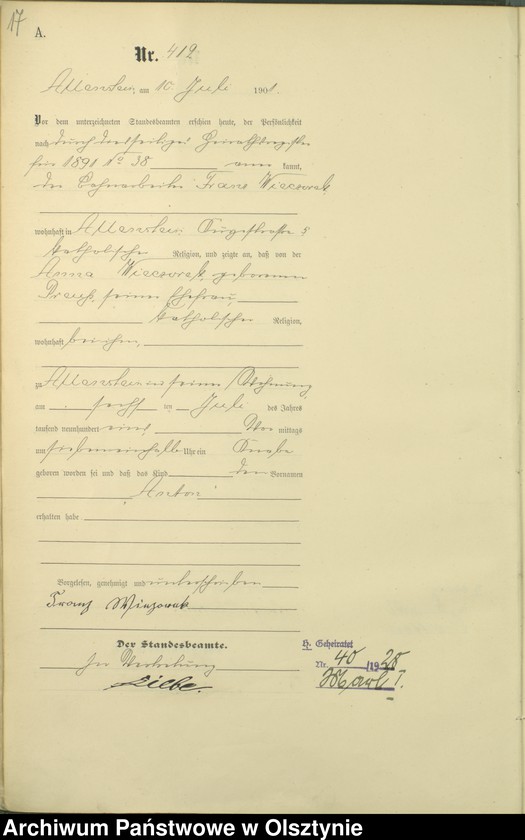 17
A.
Nr. 412
Allenstein, am 10. Juli 1901.
Vor dem unterzeichneten Standesbeamten erschien heute, der Persönlichkeit
nach durch
für 1891 No 38 kannt,
der Bahnarbeiter Franz
wohnhaft in Allenstein 5
katholischer Religion, und zeigte an, daß von der
Anna geborenen
Preuß, seiner Ehefrau,
katholischer Religion,
wohnhaft bei ihm,
zu Allenstein in seiner Wohnung
am sechsten Juli des Jahres
tausend neunhundert eins Vor mittags
um siebeneinhalb Uhr ein Knabe
geboren worden sei und daß das Kind den Vornamen
Anton
erhalten habe
Vorgelesen, genehmigt und unterschrieben
Franz Wieczorek
Der Standesbeamte.
In Vertretung
H. Geheiratet
Nr. 40/1928
I.
Archiwum Państwowe w Olsztynie